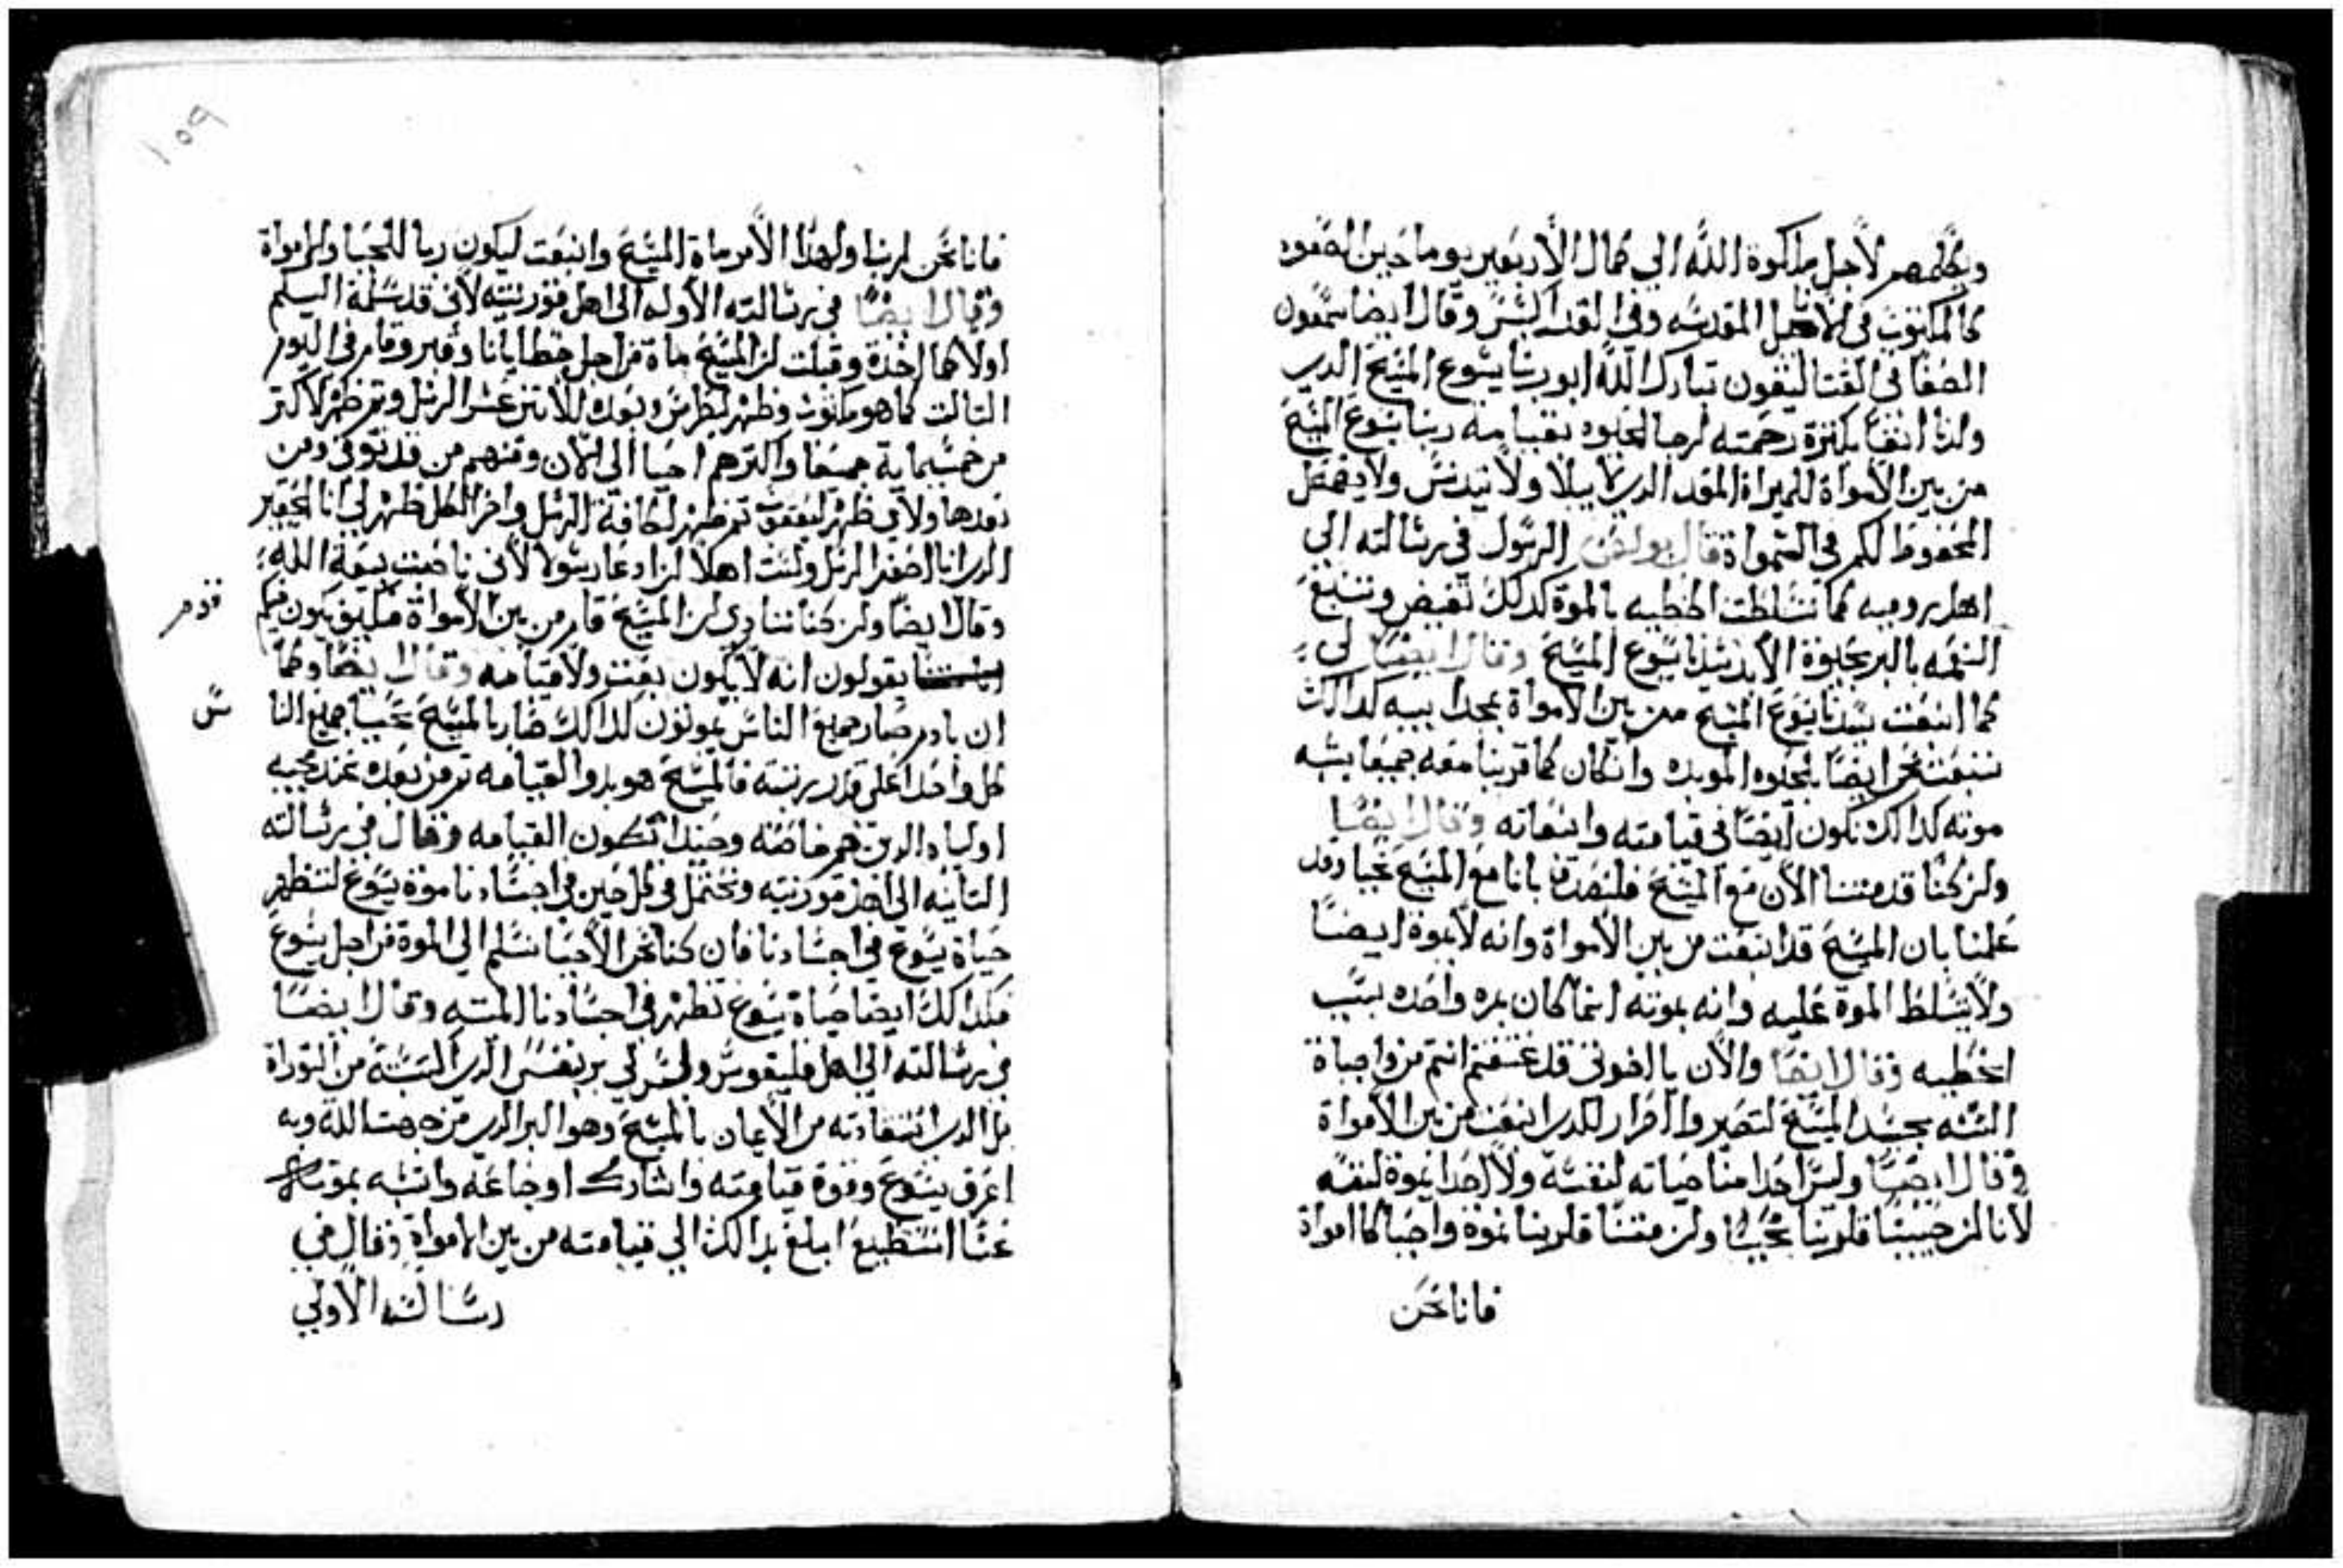 ويكلمهم لاجل ملكوة الله الي كمال الأربعين يوما حين الصعود
كالمكتوب في الاناجيل المقدسه وفي القداس وقال ايضا سمعون
الصفا في القتاليقون تبارك الله ابو ربنا يسوع المسيح الدي
ولدنا ايضا بكثرة رحمته لرجا الحيوه بقيامة ربنا يسوع المسيح
من بين الأمواة للميراة المقد الدي لا يبلا ولا يتدنس ولا يضمحل
المحفوظ لكم في السمواة قال بولس الرسول في رسالته الي
اهل روميه كما تسلطت الخطيه بالموة كدلك تفيض وتنبغ
النعمه بالبر بحيوة الأبد بسيدنا يسوع المسيح وقال ايضا لكي
كما انبعت سيدنا يسوع المسيح من بين الامواة بمجد ابيه كدالك
ننبعت نحن ايضا بحيوه الموبده وان كان كما قربنا معه جميعا بشبه
موته كدالك نكون ايضا في قيامته وانبعاته وقال ايضا
ولن كنا قد متنا الأن مع المسيح فلنصدق بانا مع المسيح نحيا وقد
علمنا بان المسيح قد انبعت من بين الأمواة وانه لا يموة ايضا
ولا يتسلط الموة عليه وانه بموته انما كان مره واحده بسبب
الخطيه وقال ايضا والأن يا اخوتي قد عتقتم انتم من واجباة
السنه بجسد المسيح لتصيروا لاخر الدي انبعت من بين الأمواة
وقال ايضا وليس احدا منا حياته لنفسه ولا احدا يموة لنفسه
لأنا لن حيينا فلربنا نحيا ولن متنا فلربنا نموة واحيا كنا ام امواة
فانا نحن
١٥٩
فانا نحن لربنا ولهدا الأمر ماة المسيح وانبعت ليكون ربا للاحيا والامواة
وقال ايضا في رسالته الأوله الى اهل قورنتيه لأني قد سلمة اليكم
اولا كما اخدة وقبلت لن المسيح ماة من اجل خطايانا وقبر وقام في اليوم
التالت كما هو مكتوب وظهر لبطرس وبعده للأتني عشر الرسل وتم ظهر لأكتر
من خمسماية جميعا واكترهم احيا الى الأن ومنهم من قد توفي ومن
بعدها ولا وظهر ليعقوب تم ظهر لكافة الرسل واخر الكل ظهر لي انا الحقير
الدي انا اصغر الرسل ولست اهلا لن ادعا رسولا لأني ناصبت بيعة الله
وقال ايضا ولن كنا ننادي لن المسيح قام من بين الأمواة فكيف يكون فيكم
قدم
يقولون انه لا يكون بعت ولا قيامه وقال ايضا وكما
ان بادم صار جميع الناس يموتون كدالك صار بالمسيح نحيا جميع النا
س
كل واحدا على قدر رتبته فالمسيح هو بدو القيامه تم من بعده عند مجيه
اولياه الدين هم خاصته وحينيدا تكون القيامه وقال في رسالته
التانيه الى اهل قورنتيه ونحتمل في كل حين في اجسادنا موة يسوع لتظهر
حياة يسوع في اجسادنا فان كنا نحن الأحيا نسلم الي الموة من اجل يسوع
فكدالك ايضا حياة يسوع تظهر في اجسادنا الميته وقال ايضا
في رسالته الي اهل فليقوس وليس لي بر نفسي الدي اكتسبته من التوراة
بل الدي استفادته من الأيمان بالمسيح وهو البر الدي من جهت الله وبه
اعرف يسوع وقوة قيامته واشارك اوجاعه واتشبه بموته
عسا استطيع ابلغ بدالك الي قيامته من بين الأمواة وقال في
رسالته الأولي